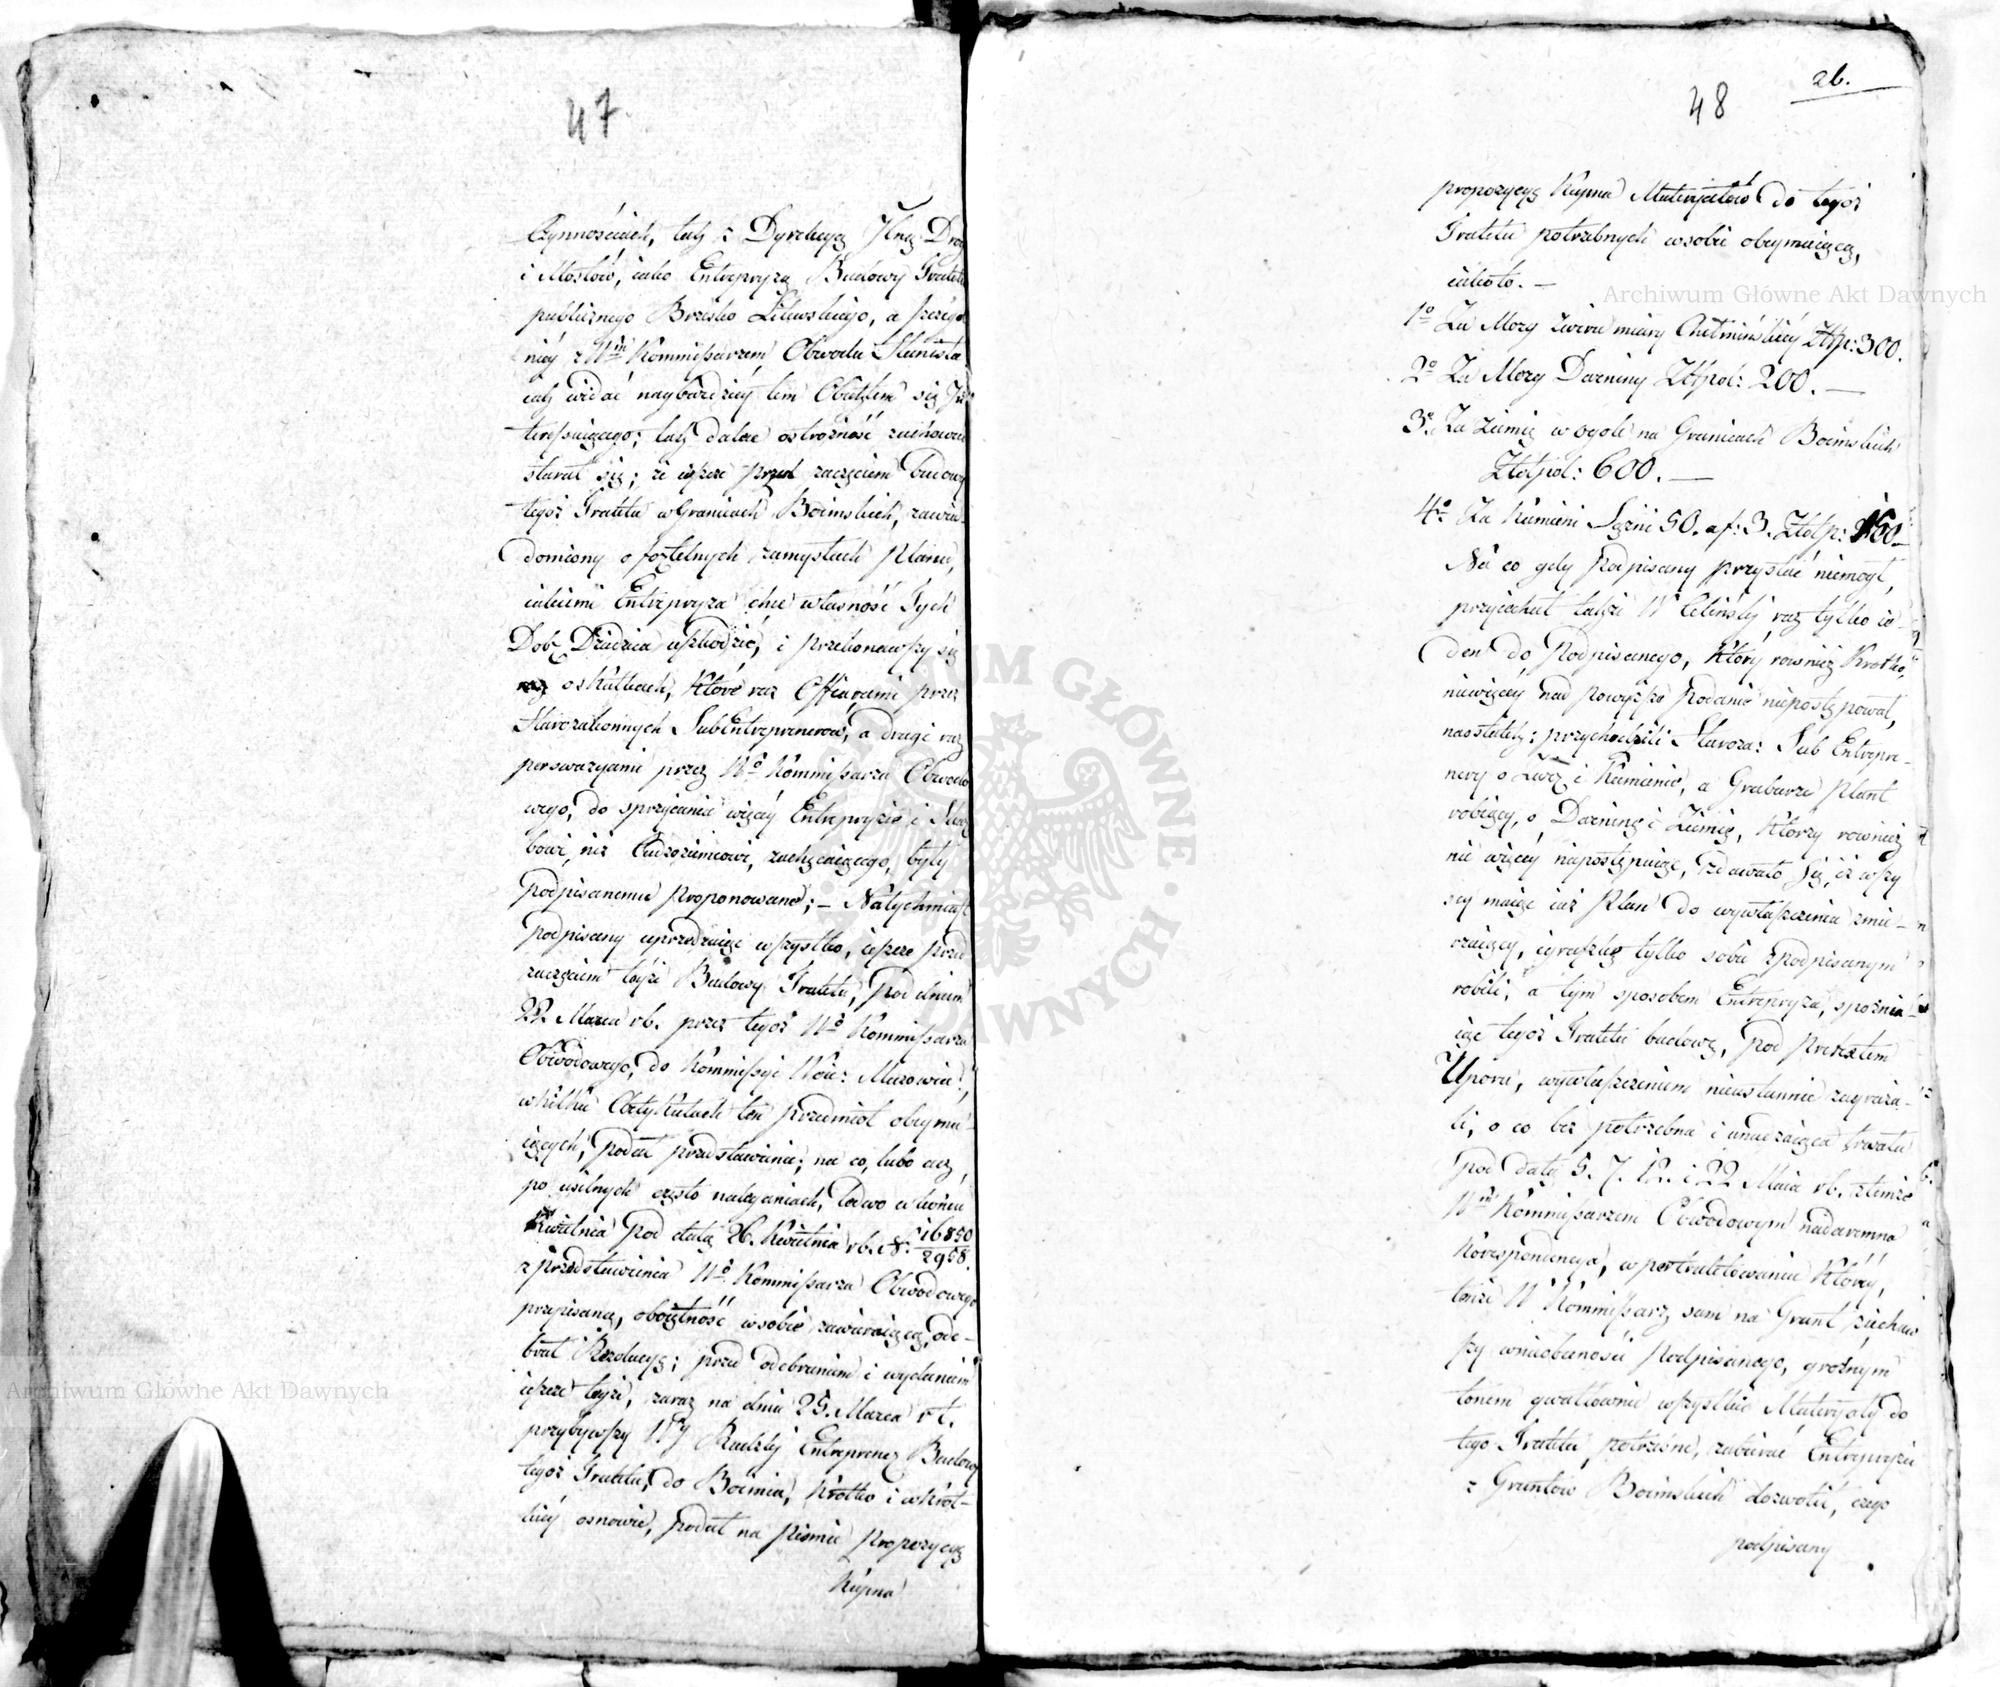 47
Czynnościach, tak z Dyrekcyą Jlną Dróg
i Mostów, iako Entrepryzą Budowy Traktu
publicznego Brzesko Litewskiego, a szczegól
niéy z Wm Kommissarzem Obwodu Stanisła
iak widać naybardziéy tem Obiektem się In
teressuiącego; tak dalece ostrożność zachować
starał się; że ieszcze przed zaczęciem budowy
tegoż Traktu w Granicach Boimskich, zawia-
domiony o zamysłach Planu,
iakiemi Entrepryza chce własność Tych
Dóbr Dziedzica uszkodzić, i przekonawszy się
o skutkach, które raz Offiarami przez
Starozakonnych SubEntreprenerów, a drugi raz
perswazyami przez Wo Kommissarza Obwodo
wego, do sprzyiania więcéy Entrepryzie i
niż Cudzoziemcowi, zachęcaiącego, były
podpisanemu proponowane; – Natychmiast
podpisany uprzedzaiąc wszystko, ieszcze przed
zaczęciem teyże Budowy Traktu, pod dniem
22. Marca rb. przez tegoż Wo Kommissarza
Obwodowego, do Kommissyi Wôie: Mazowiec:,
w kilku Artykułach ten przedmiot obeymu-
iących, podał przedstawienie; na co, lubo
po usilnych często naleganiach, ledwo w końcu
Kwietnia pod datą 26. Kwietnia rb. N. 16850/2958.
z przedstawienia Wo Kommissarza Obwodowego
przepisaną, oboiętność w sobie zawieraiącą, ode-
brał Rezolucyą; przed odebraniem i wydaniem
ieszcze teyże, zaraz na dniu 25. Marca r t.
przybywszy Wny Entreprener Budowy
tegoż Traktu, do Boimia, krótko i w krót-
kiéy osnowie, podał na piśmie propozycyą
kupna
26.
48
propozycyą kupna Materyałów do tegoż
Traktu potrzebnych w sobie obeymuiącą,
iakoto. –
1o Za Morg żwiru miary Chełmińskiéy Złtp: 300.
2o Za Morg Darniny Złtpol: 200. –
3o Za Ziemię w ogole na Granicach Boimskich
Złotpol: 600. –
4o Za Kamieni Sążni 50. a f: 3. Złtp: 150 –
Na co gdy podpisany przystać niemógł,
przyiechał także W Celiński raz tylko ie-
den do Podpisanego, który również krótko,
niewięcéy nad powyższe podanie niepostępował,
naostatek: przychodzili Staroza: Sub Entrepre-
nery o Żwir i Kamienie, a Grabarze plant
robiący, o Darninę i Ziemię, którzy również
nie więcéy niepostępuiąc, zdawało się, iż wszy
scy maiąc iuż plan do wywłaszczenia zmie-
rzaiący, igraszkę tylko sobie z podpisanym
robili, a tym sposobem Entrepryza, spóźnia
iąc tegoż Traktu budowę, pod pretextem
Uporu, wywłaszczeniem nieustannie zagraża-
li, o co bez potrzebna i utrwała
pod datą 5. 7. 12. i 22 Maia rb. z temże
Wm Kommissarzem Obwodowym nadaremna
korespondencya, w potraktowaniu któréy,
tenże W Kommissarz sam na Grunt ziechaw
szy w nieobecności podpisanego, groźnym
tonem gwałtownie wszystkie Materyały do
tego Traktu, potrzebne, zabierać Entrepryzie
z Gruntów Boimskich dozwolił, czego
podpisany
Archiwum Główne Akt Dawnych
Archiwum Główne Akt Dawnych